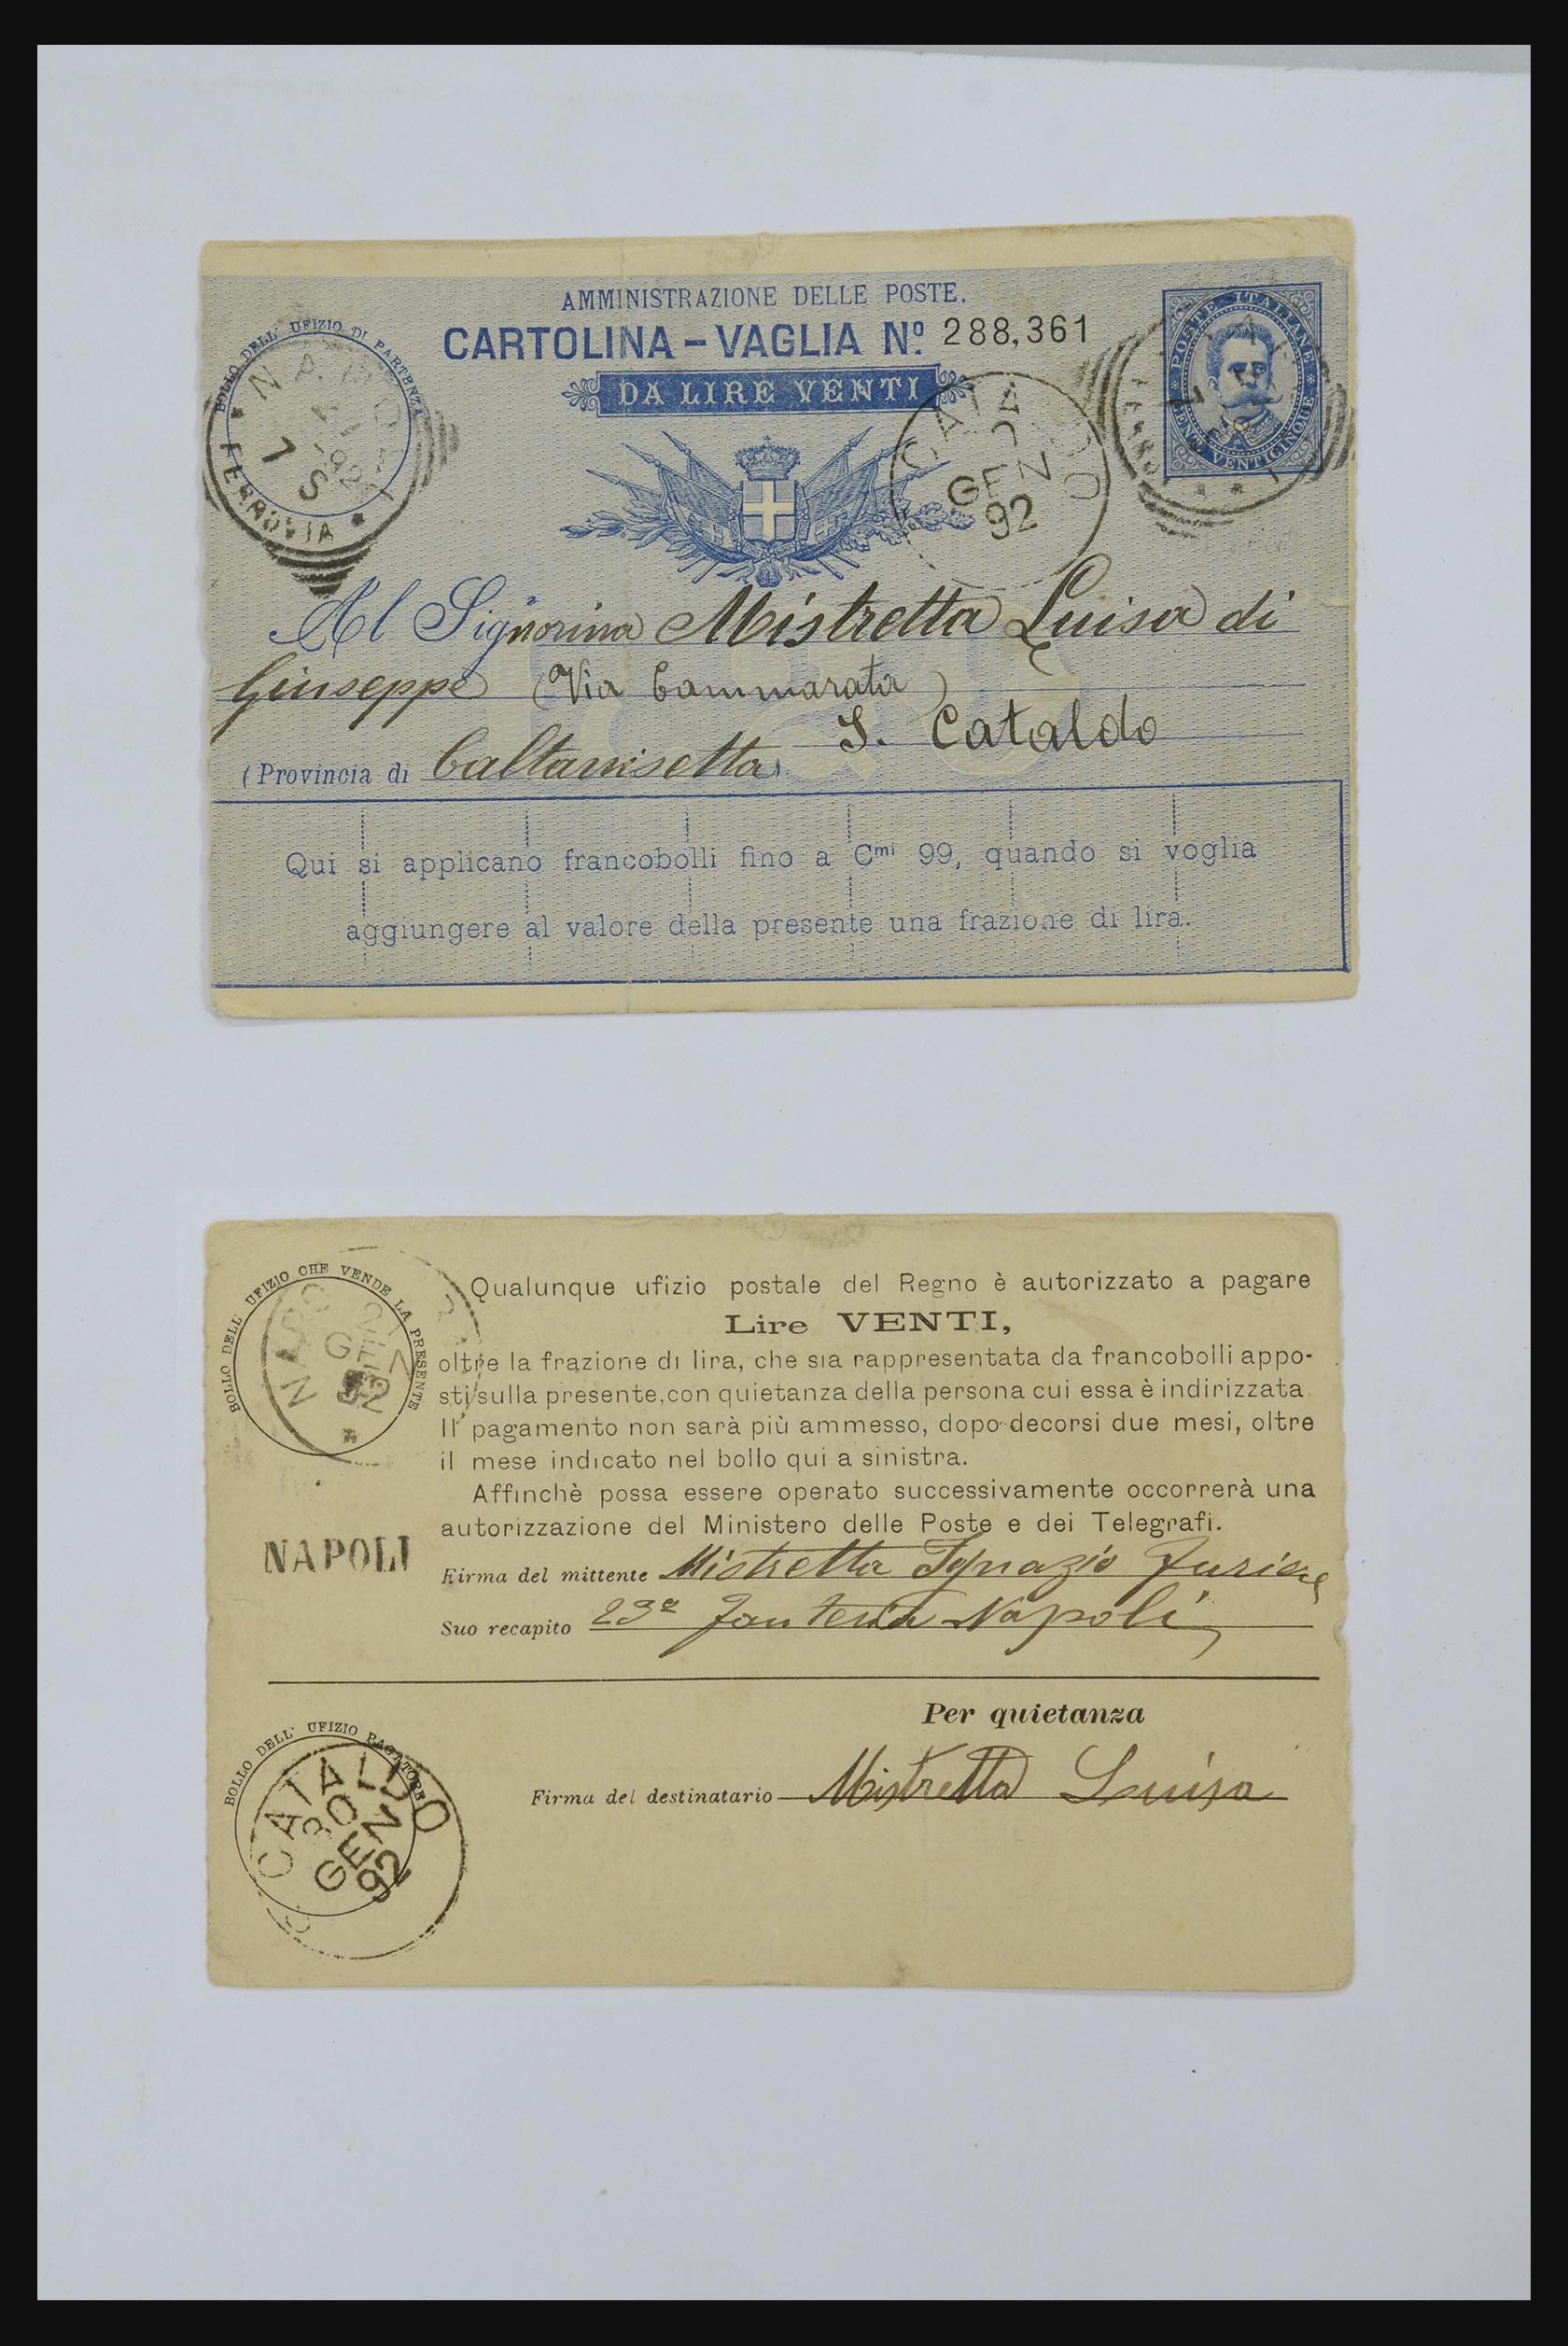 AMMINISTRAZIONE DELLE POSTE.
CARTOLINA-VAGLIA Nº. 288,361
DA LIRE VENTI
BOLLO DELL' UFIZIO DI PARTENZA
FERROVIA
92
7 S
CATA
GEN
92
POSTE ITALIANE
VENTICINQUE
Al Signorina Mistretta Luisa di
Giuseppe (Via Cammarata)
S. Cataldo
(Provincia di Caltanisetta)
Qui si applicano francobolli fino a Cmi 99, quando si voglia
aggiungere al valore della presente una frazione di lira.
BOLLO DELL' UFIZIO CHE VENDE LA PRESENTE
GEN
92
Qualunque ufizio postale del Regno è autorizzato a pagare
Lire VENTI,
oltre la frazione di lira, che sia rappresentata da francobolli appo-
sti sulla presente, con quietanza della persona cui essa è indirizzata.
Il pagamento non sarà più ammesso, dopo decorsi due mesi, oltre
il mese indicato nel bollo qui a sinistra.
Affinchè possa essere operato successivamente occorrerà una
autorizzazione del Ministero delle Poste e dei Telegrafi.
NAPOLI
Firma del mittente Mistretta Ignazio
Suo recapito 23º Fanteria Napoli
Per quietanza
BOLLO DELL' UFIZIO PAGATORE
CATALDO
30
GEN
92
Firma del destinatario Mistretta Luisa